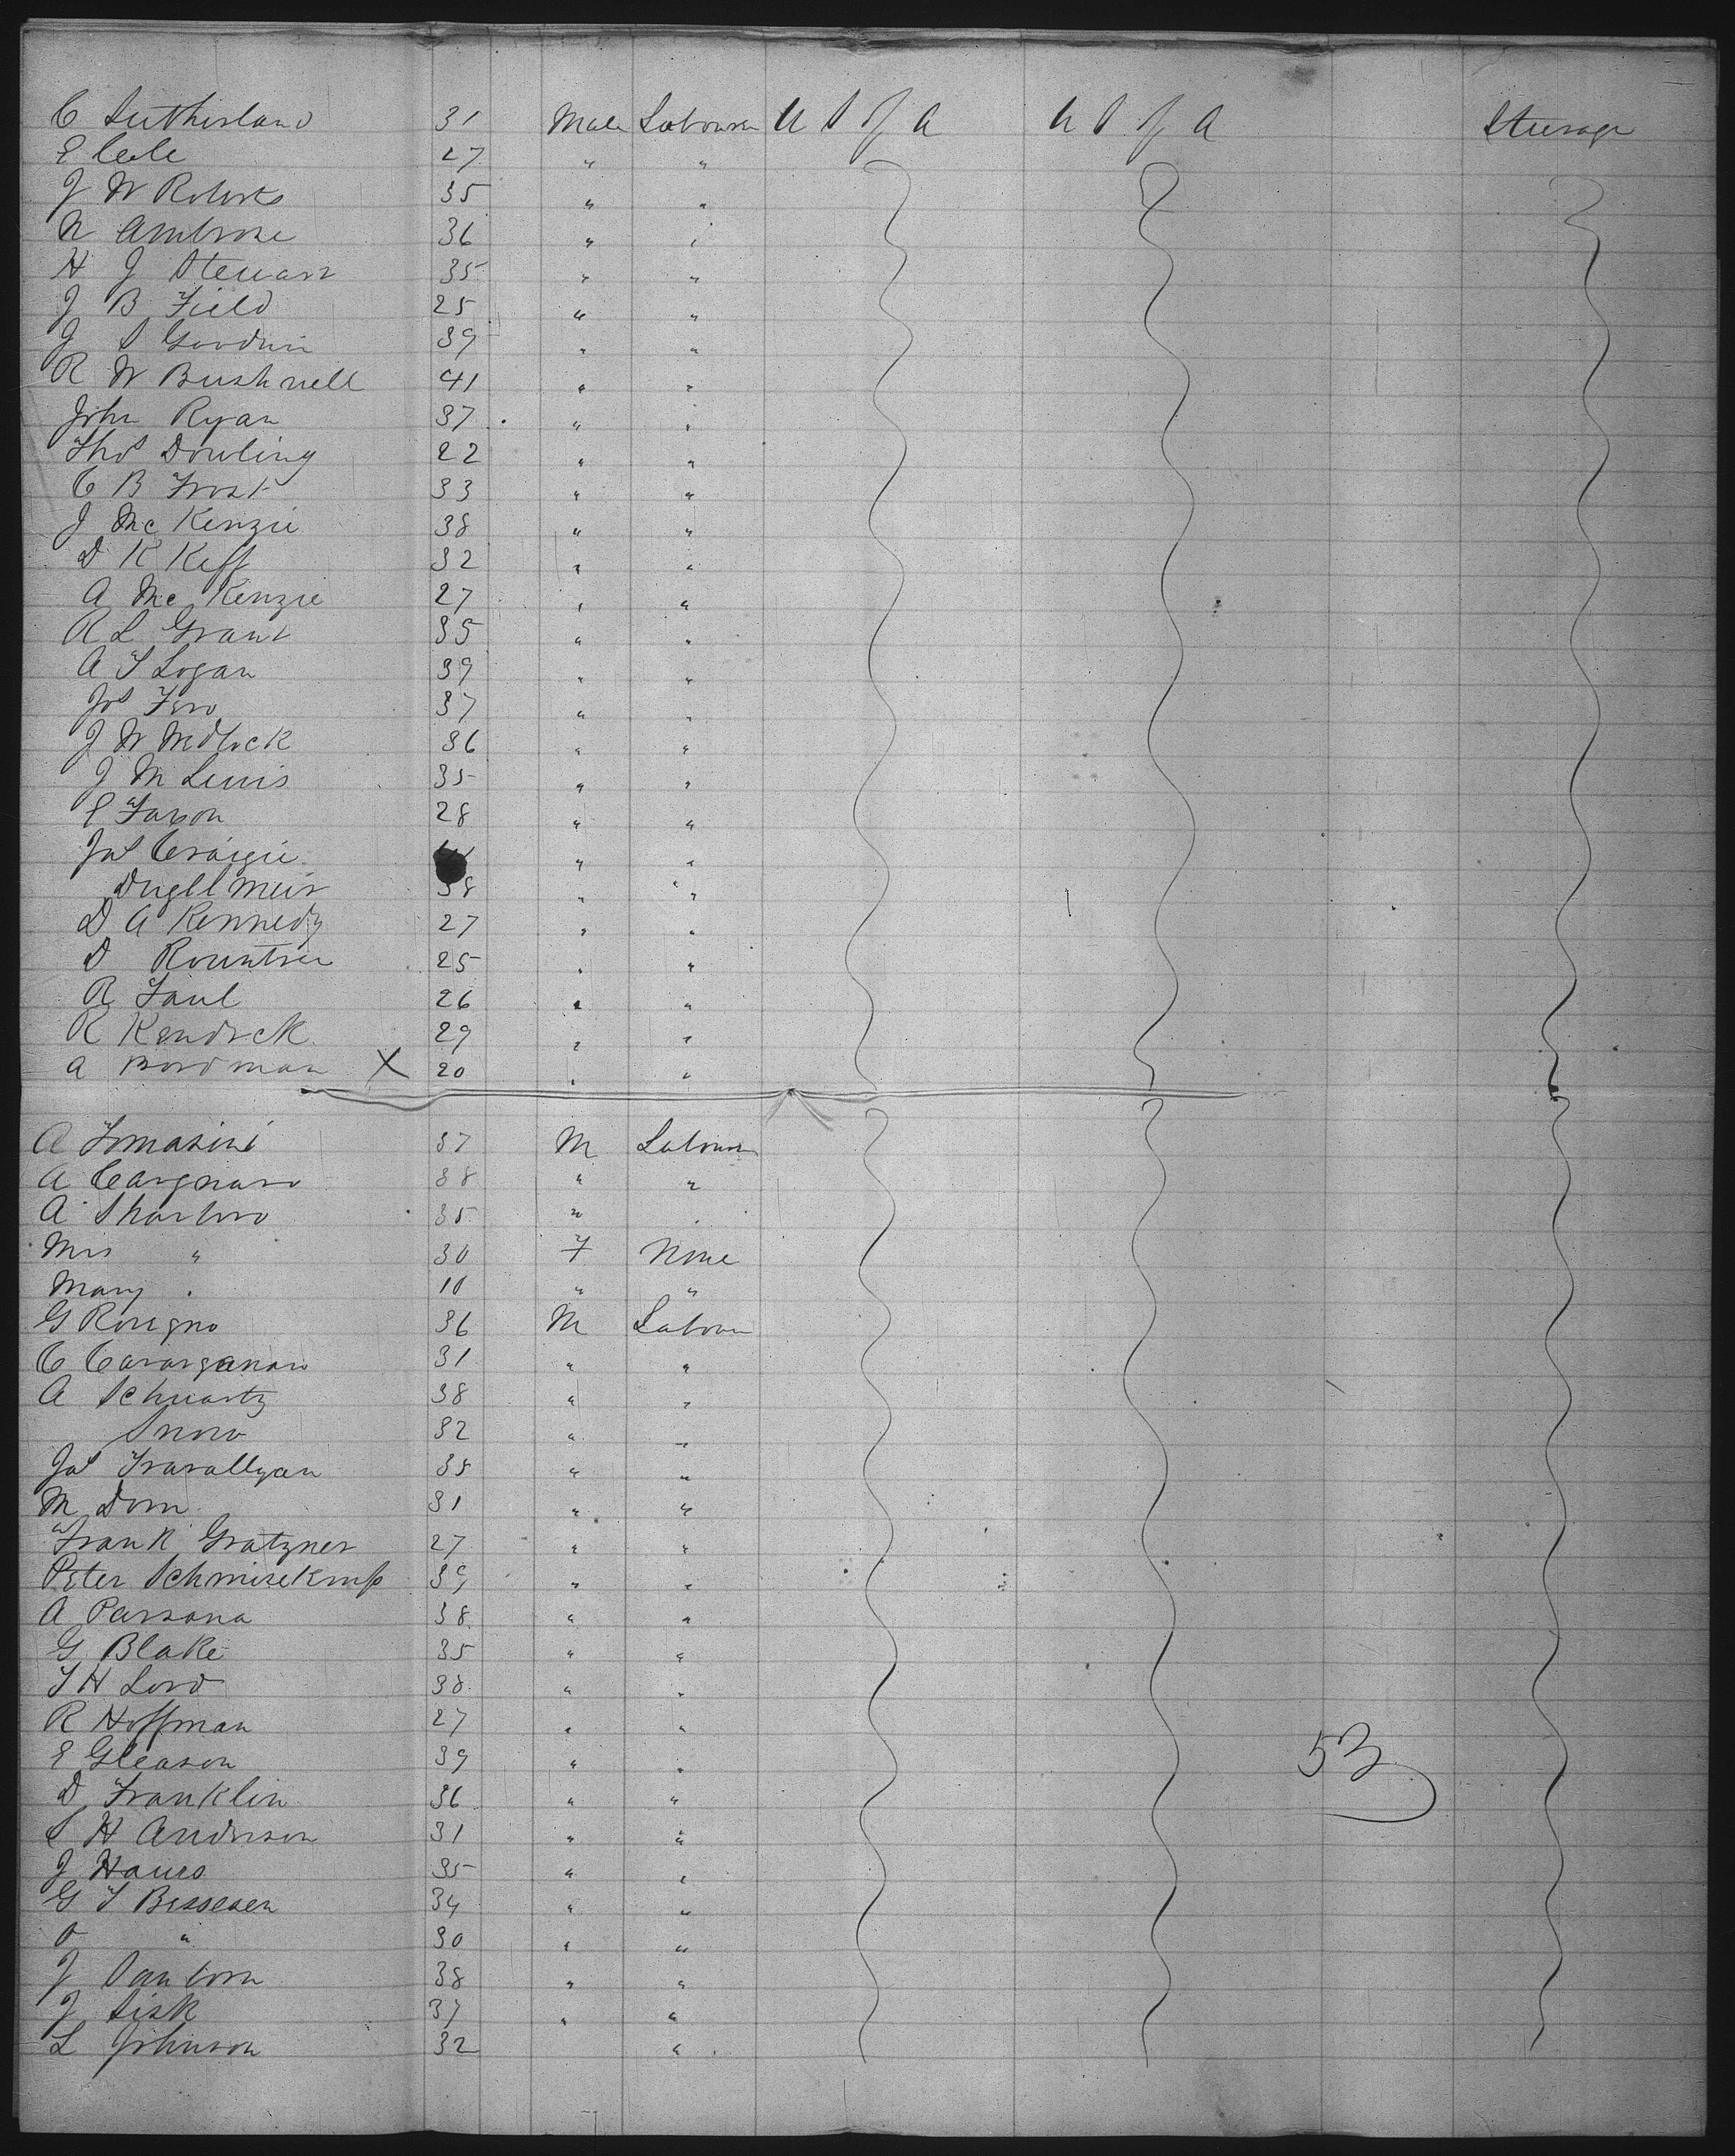 C Sutherland 31 Male Labourer U S of A U S of A Steerage
E Cole 27 " "
J W Roberts 35 " "
N Ambrose 36 " "
H J Stewart 35 " "
J B Field 25 " "
J S Goodwin 39 " "
R W Bushnell 41 " "
John Ryan 37 " "
Thos Dowling 22 " "
C B Frost 33 " "
J McKenzie 38 " "
D K Keff 32 " "
A McKenzie 27 " "
A L Grant 35 " "
A T Logan 39 " "
Jos Fero 37 " "
J W Medlock 36 " "
J M Lewis 35 " "
E Faxon 28 " "
Jas Craigie " "
Dugll Meir 38 " "
D A Kennedy 27 " "
D Rountree 25 " "
R Faul 26 " "
R Kendrck 29 " "
A Bordman X 20 " "
A Tomasini 37 M Labourer
A Cargnaro 38 " "
A Sharboro 35 " "
Mrs " 30 F None
Mary " 10 " "
G Rovegno 36 M Labour
C 31 " "
A Schwartz 38 " "
Snow 32 " "
Jas 35 " "
M Dorn 31 " "
Frank Gratzner 27 " "
Peter 39 " "
A Parsons 38 " "
G Blake 35 " "
T H Lord 38 " "
R Hoffman 27 " "
E Gleason 39 " " 53
D Franklin 36 " "
C H Anderson 31 " "
J Hawes 35 " "
G T Bessesen 34 " "
O " 30 " "
J Sanborn 38 " "
J Sisk 37 " "
L Johnson 32 "